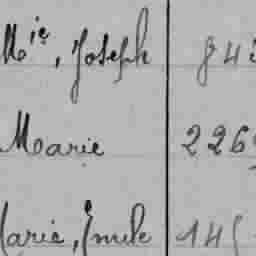 Mie, Joseph 841
Marie 2269
Marie, Emile 145